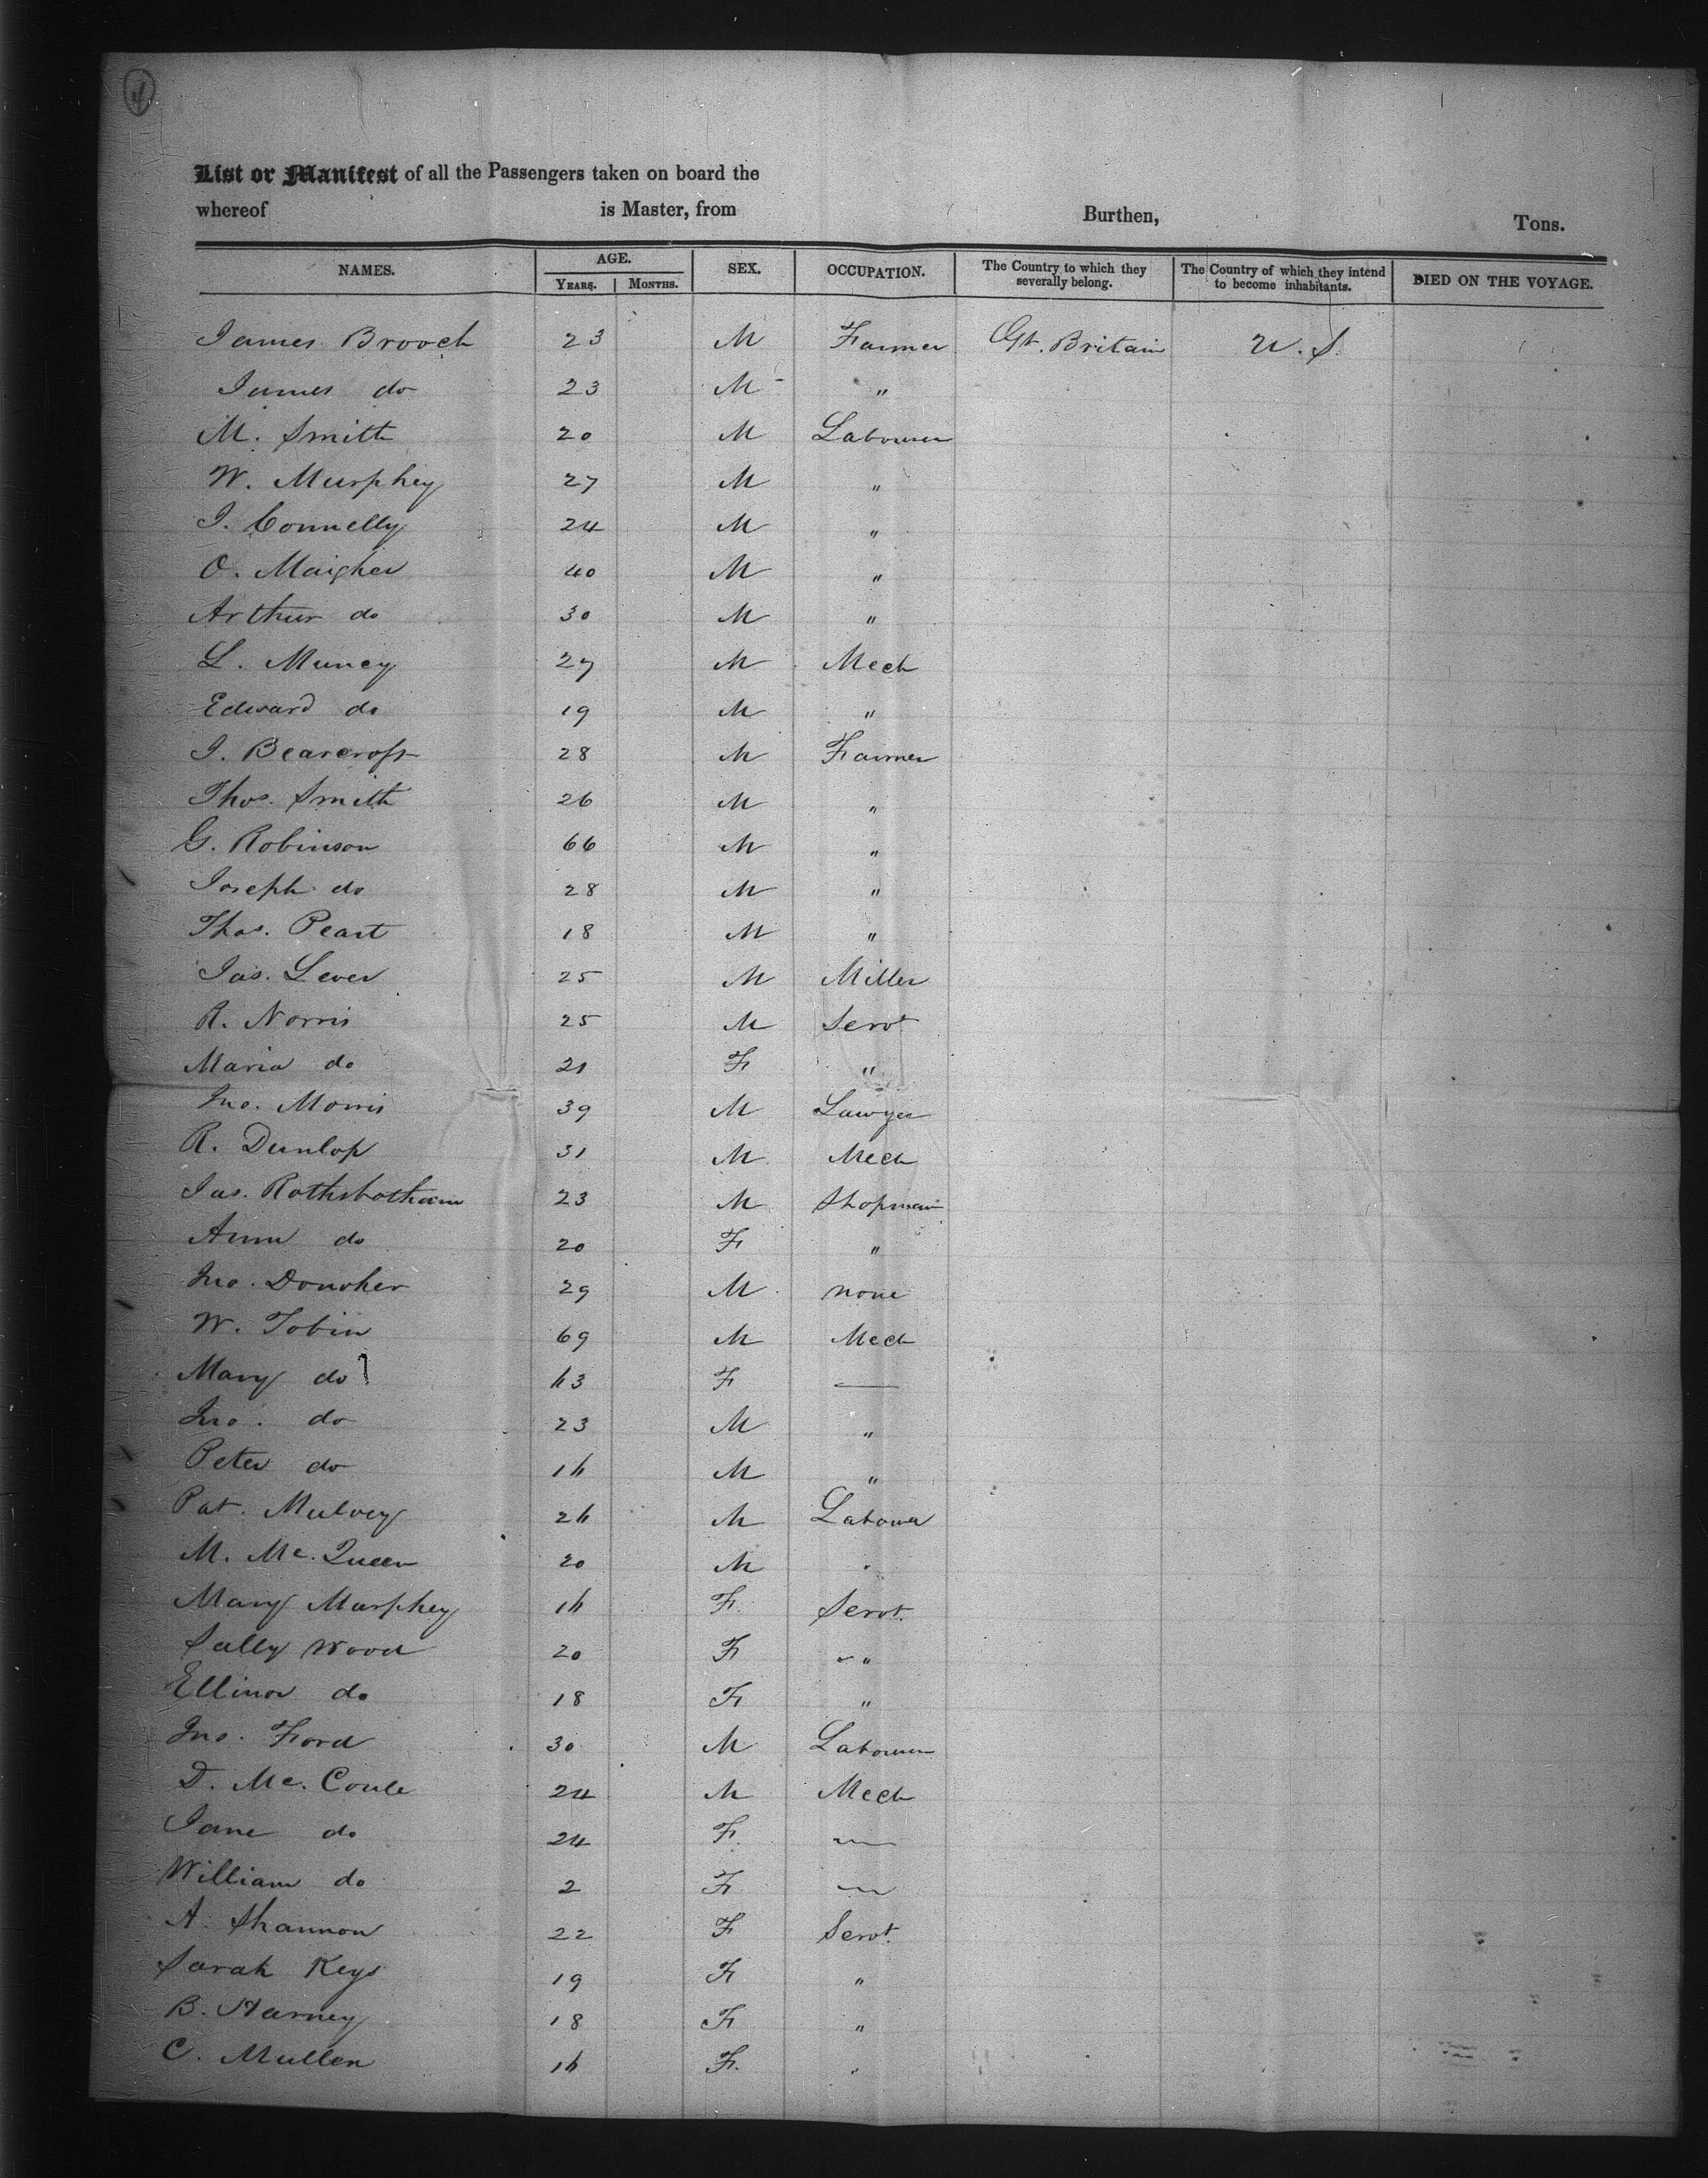 4
List or Manifest of all the Passengers taken on board the
whereof is Master, from Burthen, Tons.
NAMES. AGE. SEX. OCCUPATION. The Country to which they severally belong. The Country of which they intend to become inhabitants. DIED ON THE VOYAGE.
YEARS. MONTHS.
James Brooch 23 M Farmer Gt. Britain U. S.
James do 23 M "
M. Smith 20 M Labourer
W. Murphey 27 M "
J. Connelly 24 M "
O. Maigher 40 M "
Arthur do 30 M "
L. Muncy 27 M Mech
Edward do 19 M "
J. Bearcroft 28 M Farmer
Thos. Smith 26 M "
G. Robinson 66 M "
Joseph do 28 M "
Thos. Peart 18 M "
Jas. Lever 25 M Miller
R. Norris 25 M Servt
Maria do 21 F "
Jno. Morris 39 M Lawyer
R. Dunlop 31 M Mech
Jas. Rothsbotham 23 M Shopman
Ann do 20 F "
Jno. Donoher 29 M none
W. Tobin 69 M Mech
Mary do 63 F —
Jno. do 23 M "
Peter do 16 M "
Pat. Mulvey 26 M Labourer
M. Mc. Queen 20 M "
Mary Murphey 16 F Servt.
Sally Wood 20 F "
Ellinor do 18 F "
Jno. Ford 30 M Labourer
D. Mc. Coule 24 M Mech
Jane do 24 F —
William do 2 F —
A. Shannon 22 F Servt.
Sarah Keys 19 F "
B. Harney 18 F "
C. Mullen 16 F. "